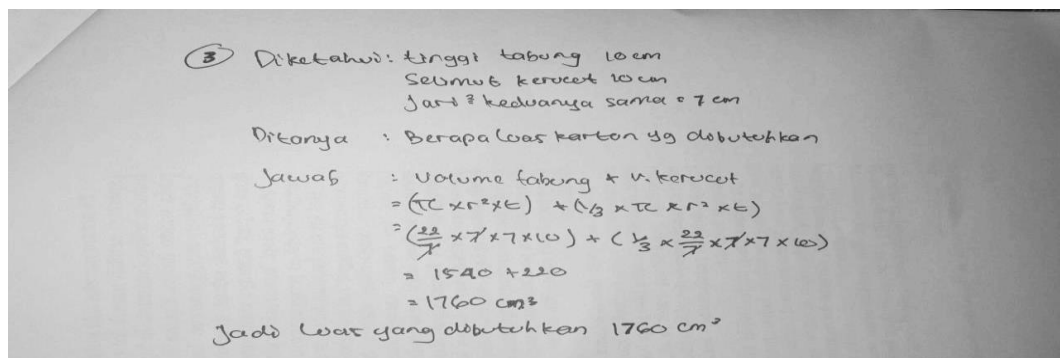 ③ Diketahui: tinggi tabung 10 cm
Selimut kerucut 10 cm
Jari² keduanya sama = 7 cm
Ditanya : Berapa luas karton yg dibutuhkan
Jawab : Volume tabung + v. kerucut
= (π x r² x t) + (1/3 x π x r² x t)
= (22/7 x 7 x 7 x 10) + (1/3 x 22/7 x 7 x 7 x 10)
= 1540 + 220
= 1760 cm³
Jadi luas yang dibutuhkan 1760 cm³